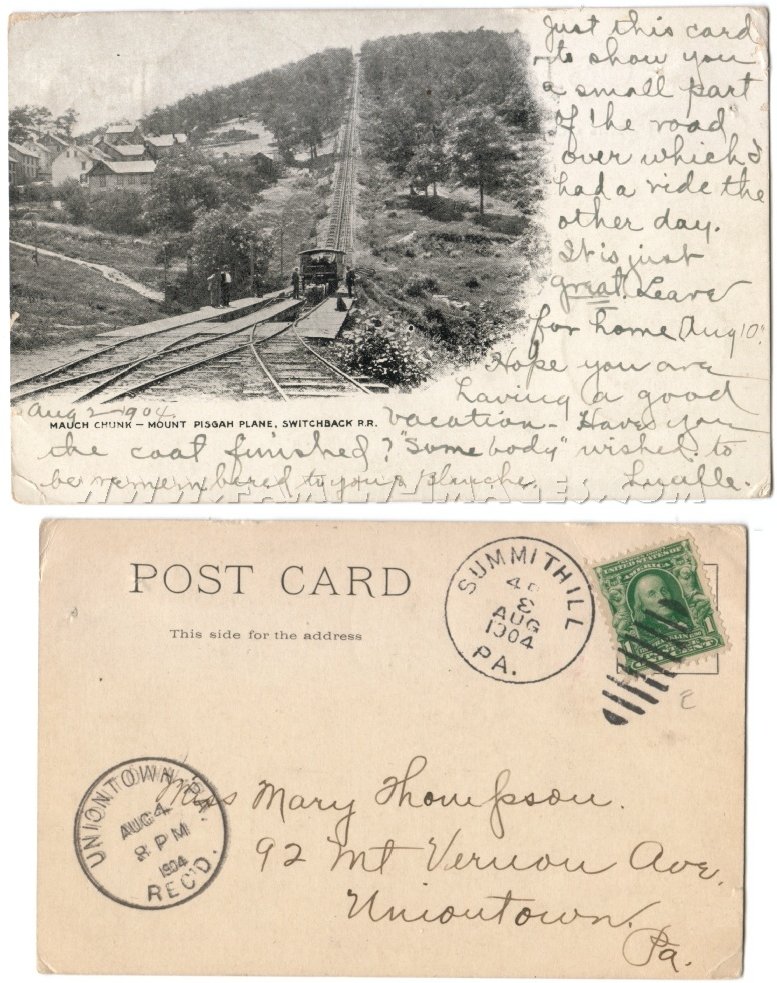 Just this card
to show you
a small part
of the road
over which I
had a ride the
other day.
It is just
great. Leave
for home Aug 10"
Hope you are
having a good
Aug 2 - 1904.
MAUCH CHUNK — MOUNT PISGAH PLANE, SWITCHBACK R.R.
vacation - Have you
the coat finished? "Somebody" wished to
be remembered to you a/Blanche. Lucille.
WWW.FAMILY-IMAGES.COM
POST CARD
This side for the address
SUMMITHILL
AUG
1904
PA.
UNITED STATES OF
AMERICA
FRANKLIN
ONE CENT
UNIONTOWN, PA.
AUG 4
8 PM
1904
REC'D.
Miss Mary Thompson.
92 Mt Vernon Ave.
Uniontown.
Pa.